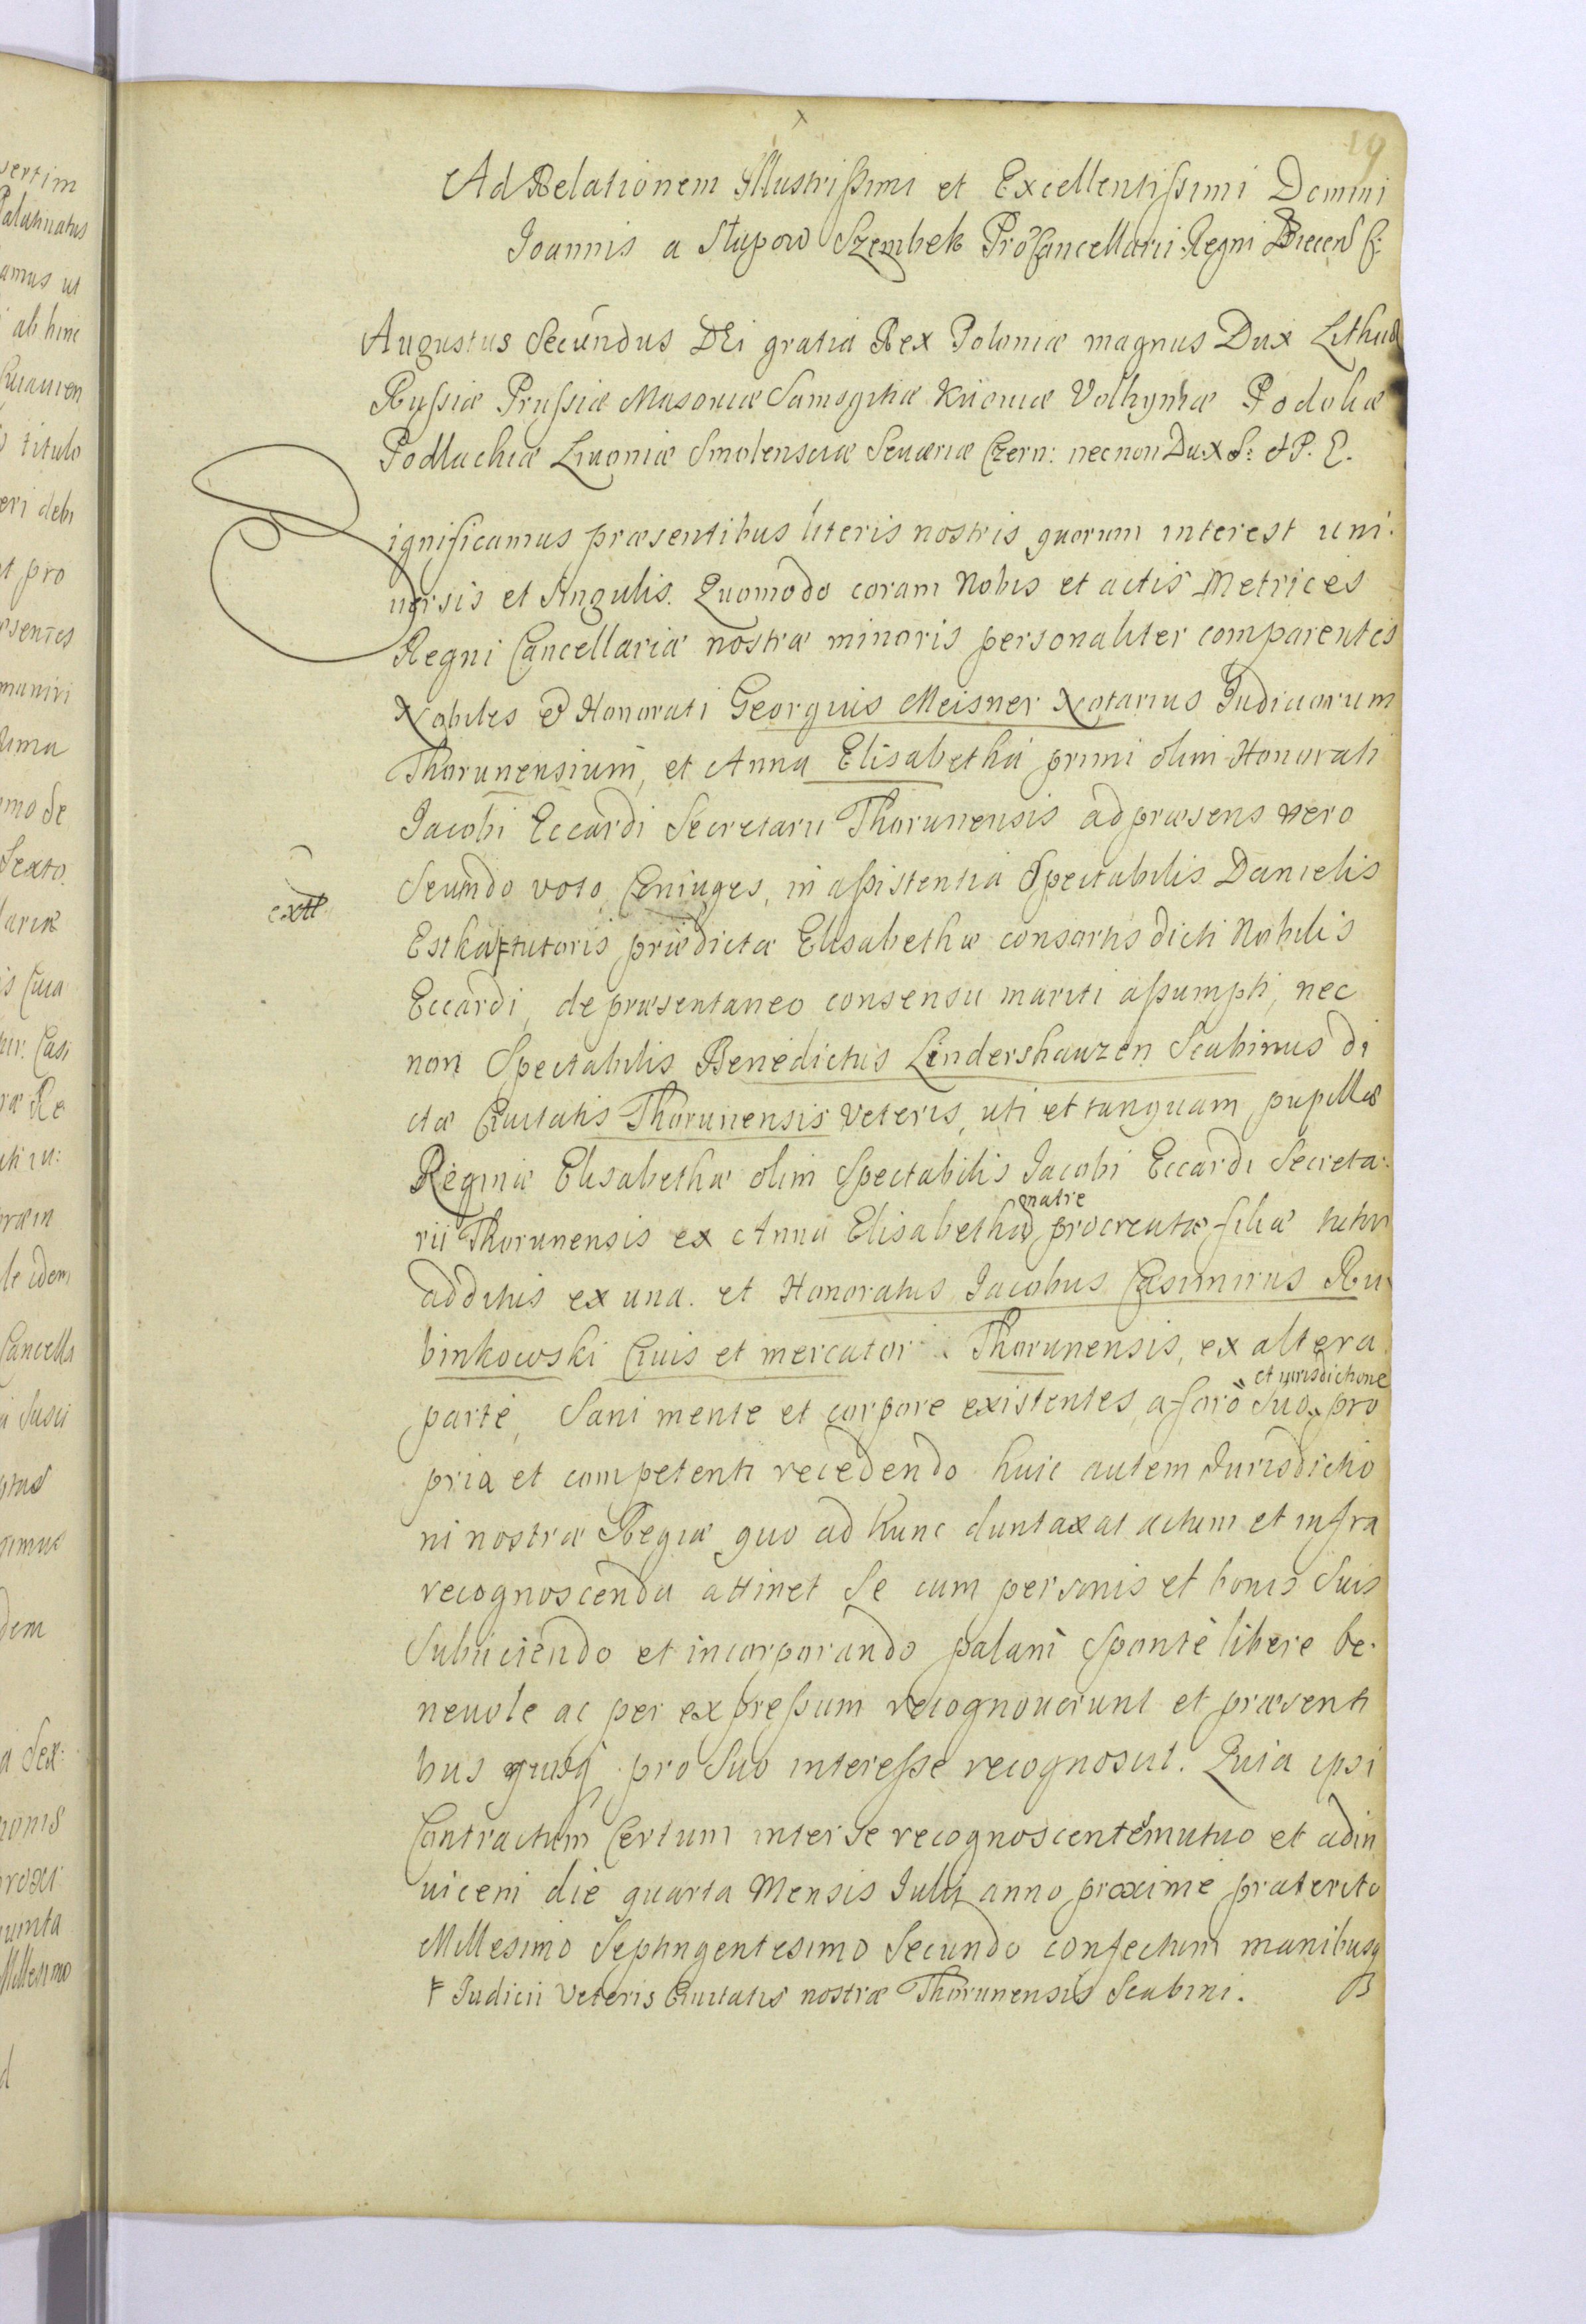 19
Ad Relationem Illustrissimi et Excellentissimi Domini
Joannis a Słupow Szembek ProCancellarii Regni
Augustus Secundus DEi gratia Rex Poloniæ magnus Dux Lithuæ
Russiæ Prussiæ Masoviæ Samogitiæ Kiioviæ Volhyniæ Podoliæ
Podlachiæ Livoniæ Smolensciæ Severiæ Czern: necnon Dux S: et P. E.
Significamus præsentibus literis nostris quorum interest uni:
versis et singulis. Quomodo coram Nobis et actis Metrices
Regni Cancellariæ nostræ minoris personaliter comparentes
Nobiles et Honorati Georgius Meisner Notarius Judiciorum
Thorunensium, et Anna Elisabetha primi olim Honorati
Jacobi Eccardi Secretarii Thorunensis ad præsens vero
Secundo voto Coniuges, in assistentia Spectabilis Danielis
extt
Estka ꝉ tutoris prædictæ Elisabethæ consortis dicti Nobilis
Eccardi, de præsentaneo consensu mariti assumpti, nec
non Spectabilis Benedictus Lindershauzen Scabinus di
ctæ Civitatis Thorunensis Veteris, uti et tanquam pupillæ
Reginæ Elisabethæ olim Spectabilis Jacobi Eccardi Secreta:
matre
rii Thorunensis ex Anna Elisabetha procreatæ filiæ tutor
additus ex una. et Honoratus Jacobus Casimirus Ru
binkowski Civis et mercator Thorunensis, ex altera
et jurisdictione
parte, Sani mente et corpore existentes, a foro suo pro
pria et competenti recedendo huic autem Jurisdictio
ni nostræ Regiæ quo ad hunc duntaxat actum et infra
recognoscenda attinet Se cum personis et bonis Suis
Subiiciendo et incorporando palam sponte libere be:
nevole ac per expressum recognoverunt et præsenti
bus pro Suo interesse recognoscut. Quia ipsi
Contractum Certum inter Se recognoscentes mutuo et adin
vicem die quarta Mensis Julii anno proxime præterito
Millesimo Septingentesimo Secundo confectum manibusq
ꝉ Judicii Veteris Civitatis nostræ Thorunensis Scabini.